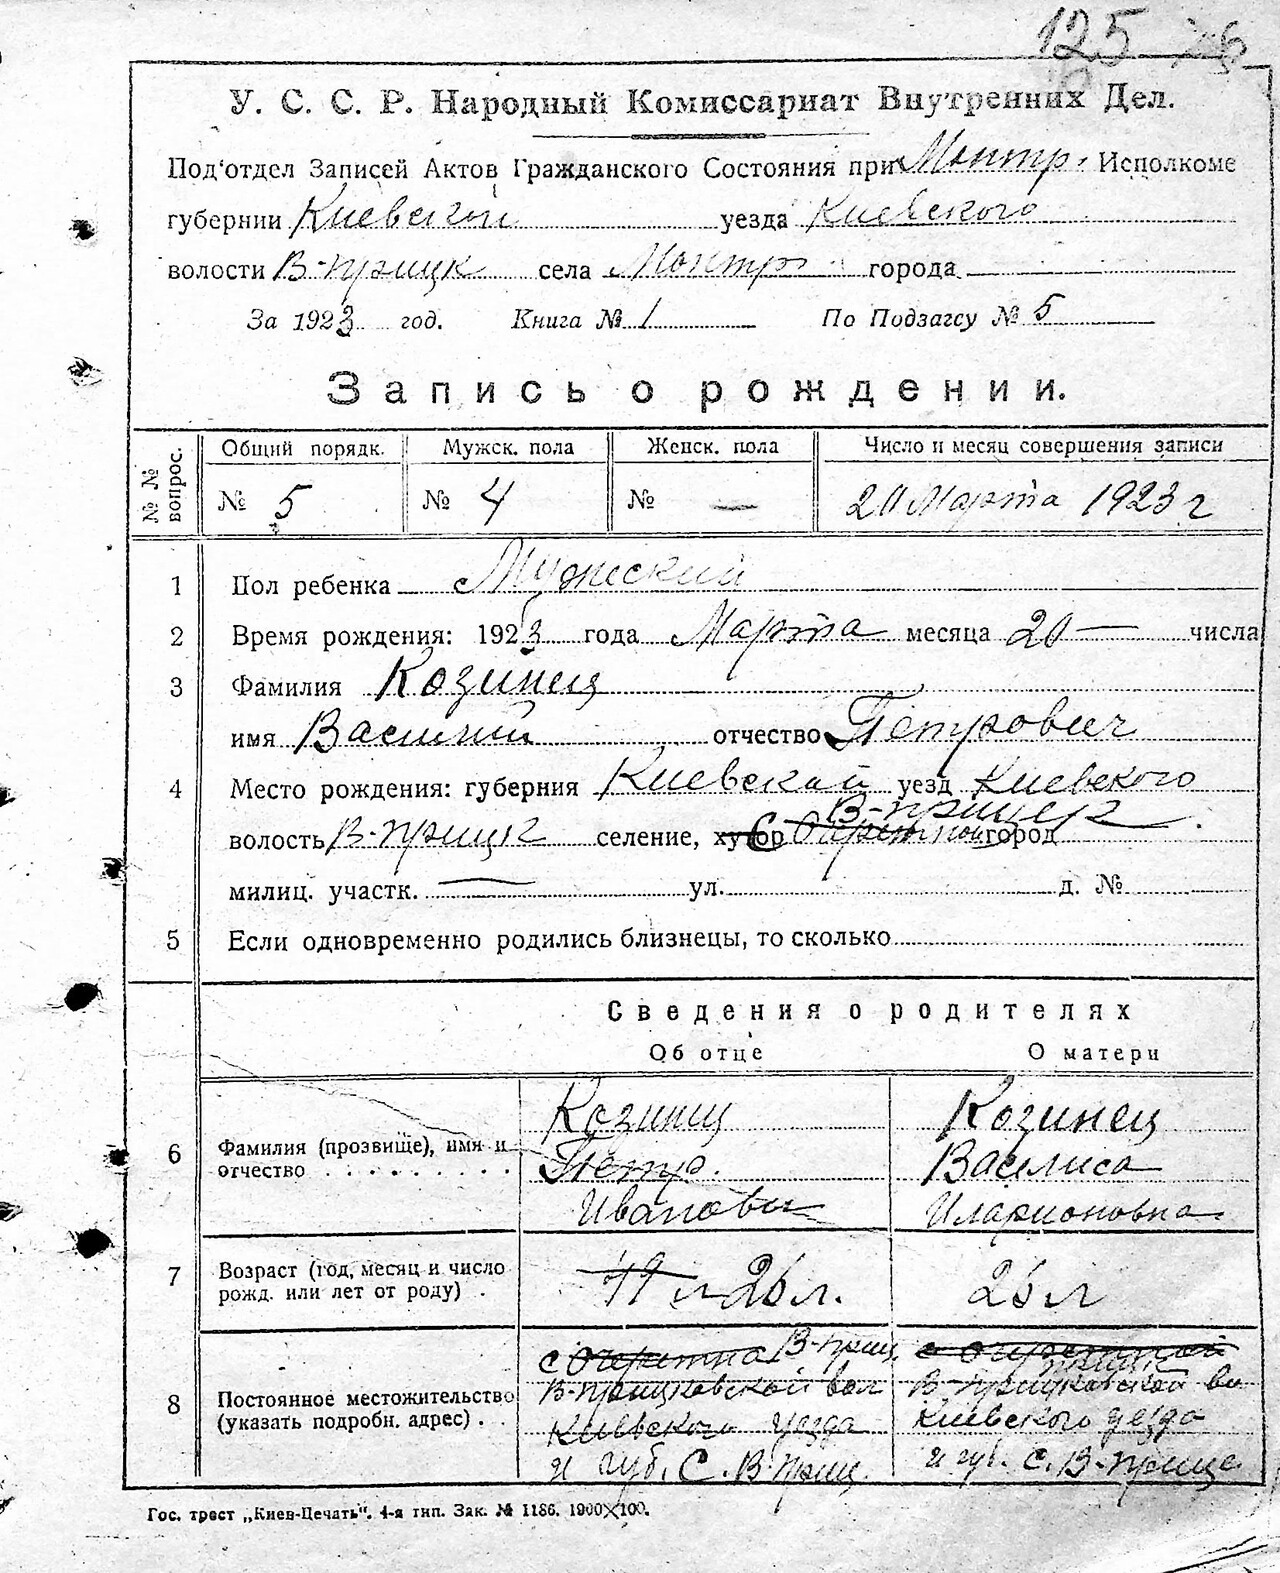 125
У. С. С. Р. Народный Комиссариат Внутренних Дел.
Под'отдел Записей Актов Гражданского Состояния при Монтр. Исполкоме
губернии Киевской уезда Киевского
волости В-прицк села Монтр города
За 1923 год. Книга № 1 По Подзагсу № 5
Запись о рождении.
№ № вопрос. Общий порядк. Мужск. пола Женск. пола Число и месяц совершения записи
№ 5 № 4 № — 20 Марта 1923 г
1 Пол ребенка Мужеский
2 Время рождения: 1923 года Марта месяца 20 — числа
3 Фамилия Козинец
имя Василий отчество Петрович
4 Место рождения: губерния Киевской уезд Киевского
В-прицк
волость В-прицк селение, хутор С город
милиц. участк. — ул. д. №
5 Если одновременно родились близнецы, то сколько
Сведения о родителях
Об отце О матери
6 Фамилия (прозвище), имя и отчество
Козинец
Петр.
Иванови
Козинец
Василиса
Иларионовна
7 Возраст (год, месяц и число рожд. или лет от роду)
26 л.
26 л
8 Постоянное местожительство (указать подробн. адрес)
с В-приц
В-прицковской вол
Киевского уезда
и губ. С. В-приц
В-прицковской во
Киевского уезда
и губ. С. В-прице
Гос. трест „Киев-Печать". 4-я тип. Зак. № 1186. 1900×100.